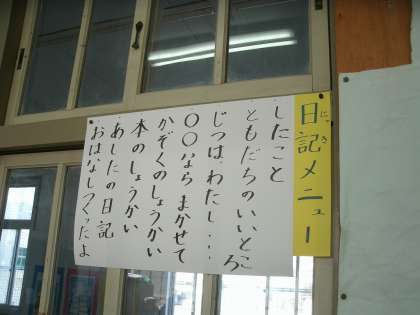 日記メニュー
にっき
・したこと
・ともだちのいいところ
・じつは、わたし・・・
・〇〇ならまかせて
・かぞくのしょうかい
・本のしょうかい
・あしたの日記
・おはなしつくったよ